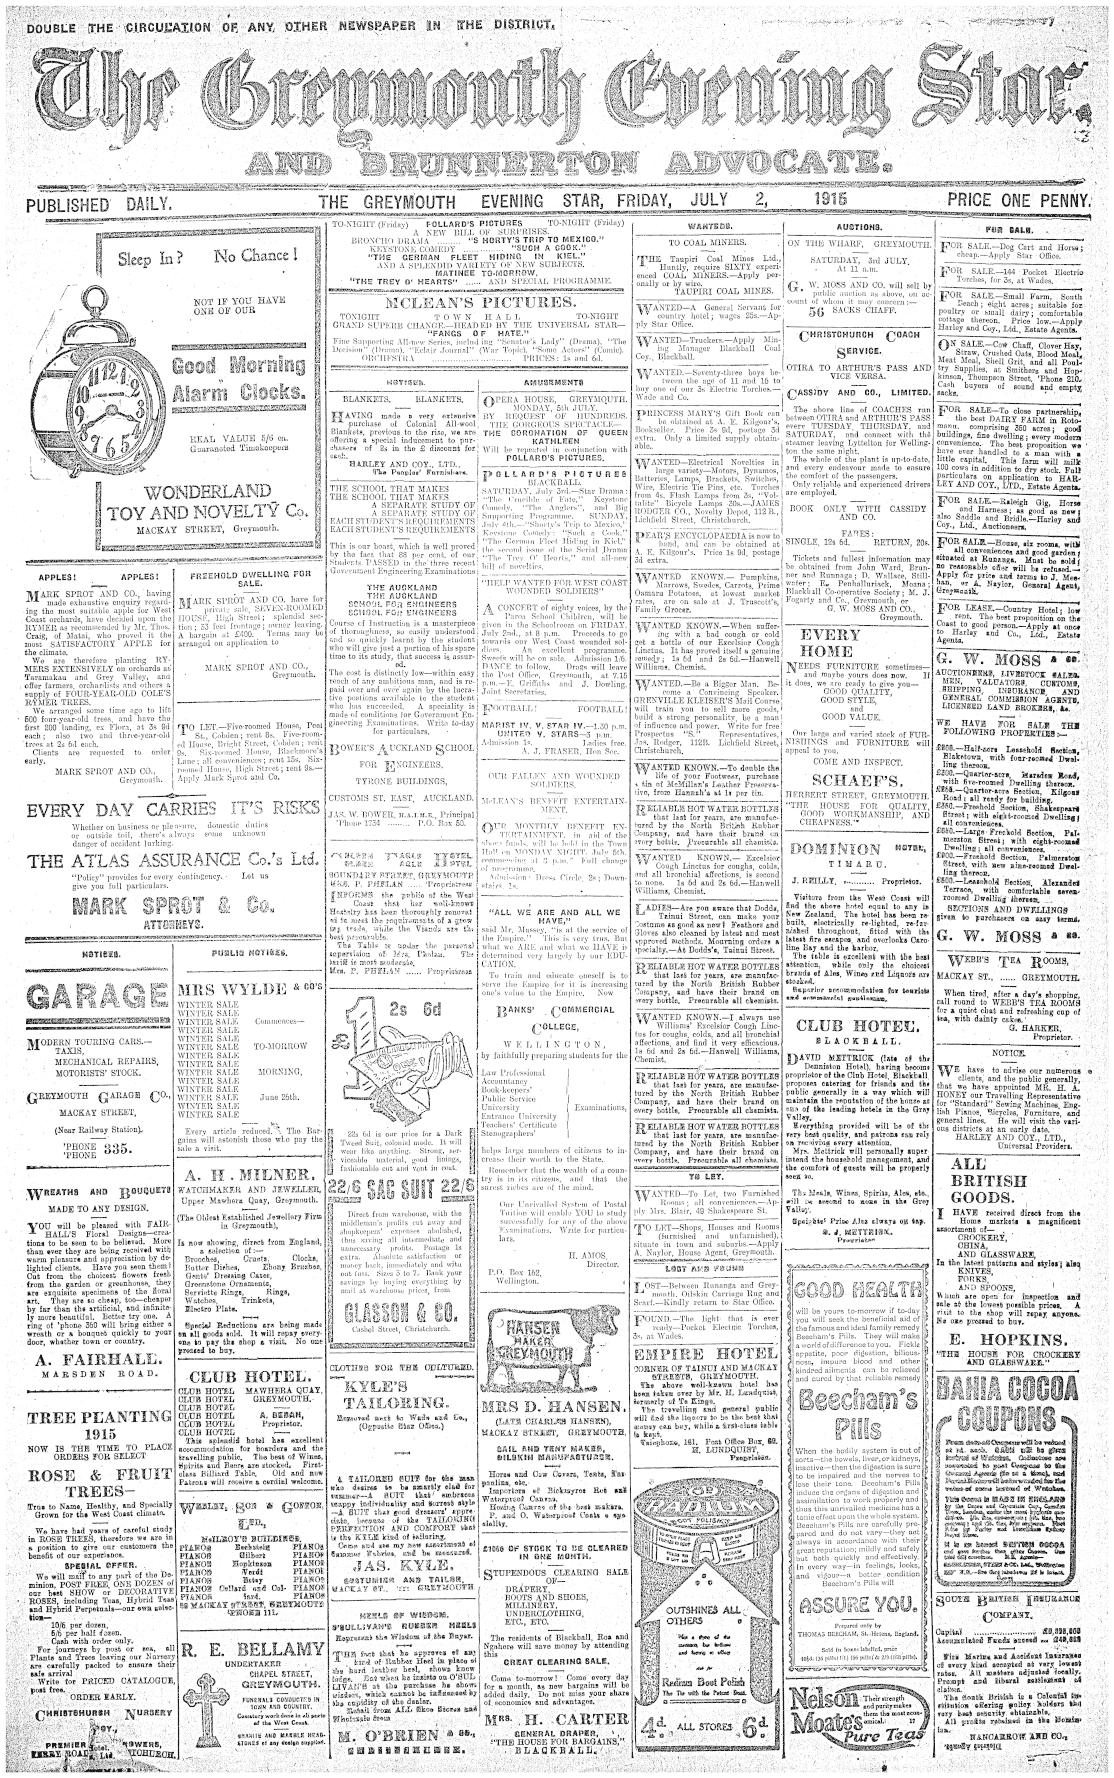 DOUBLE THE CIRCULATION OF ANY OTHER NEWSPAPER IN THE DISTRICT.
The Greymouth Evening Star
AND BRUNNERTON ADVOCATE.
PUBLISHED DAILY.
THE GREYMOUTH EVENING STAR, FRIDAY, JULY 2, 1915
PRICE ONE PENNY.
Sleep In? No Chance!
NOT IF YOU HAVE
ONE OF OUR
Good Morning
Alarm Clocks.
REAL VALUE 5/6 ea.
Guaranteed Timekeepers
WONDERLAND
TOY AND NOVELTY Co.
MACKAY STREET, Greymouth.
APPLES! APPLES!
MARK SPROT AND CO., having
made exhaustive enquiry regarding
the most suitable apple for West
Coast orchards, have decided upon the
RYMER as recommended by Mr. Thos.
Craig, of Matai, who proved it the
most SATISFACTORY APPLE for
the climate.
We are therefore planting RYMERS
EXTENSIVELY on orchards at
Taramakau and Grey Valley, and
offer farmers, orchardists and others a
supply of FOUR-YEAR-OLD COLE'S
RYMER TREES.
We arranged some time ago to lift
500 four-year-old trees, and have the
first 200 landing, ex Flora, at 3s 3d
each; also two and three-year-old
trees at 2s 6d each.
Clients are requested to order
early.
MARK SPROT AND CO.,
Greymouth.
FREEHOLD DWELLING FOR
SALE.
MARK SPROT AND CO. have for
private sale, SEVEN-ROOMED
HOUSE, High Street; splendid section;
53 feet frontage; owner leaving.
A bargain at £400. Terms may be
arranged on application to
MARK SPROT AND CO.,
Greymouth.
TO LET.—Five-roomed House, Peel
St., Cobden; rent 8s. Five-roomed
House, Bright Street, Cobden; rent
9s. Six-roomed House, Blackmore's
Lane; all conveniences; rent 15s. Six-roomed
House, High Street; rent 9s.—
Apply Mark Sprot and Co.
EVERY DAY CARRIES IT'S RISKS
Whether on business or pleasure, domestic duties
or outside toil, there's always some unknown
danger of accident lurking.
THE ATLAS ASSURANCE Co.'s Ltd.
"Policy" provides for every contingency. Let us
give you full particulars.
MARK SPROT & Co.
ATTORNEYS.
NOTICES.
GARAGE
MODERN TOURING CARS.—
TAXIS,
MECHANICAL REPAIRS,
MOTORISTS' STOCK.
GREYMOUTH GARAGE CO.,
MACKAY STREET,
(Near Railway Station).
'PHONE 335.
'PHONE
WREATHS AND BOUQUETS
MADE TO ANY DESIGN.
YOU will be pleased with FAIRHALL'S
Floral Designs—creations
to be seen to be believed. More
than ever they are being received with
warm pleasure and appreciation by delighted
clients. Have you seen them?
Cut from the choicest flowers fresh
from the garden or greenhouse, they
are exquisite specimens of the floral
art. They are so cheap, too—cheaper
by far than the artificial, and infinitely
more beautiful. Better try one. A
ring of 'phone 350 will bring either a
wreath or a bouquet quickly to your
door, whether town or country.
A. FAIRHALL.
MARSDEN ROAD.
TREE PLANTING
1915
NOW IS THE TIME TO PLACE
ORDERS FOR SELECT
ROSE & FRUIT
TREES—
True to Name, Healthy, and Specially
Grown for the West Coast climate.
We have had years of careful study
in ROSE TREES, therefore we are in
a position to give our customers the
benefit of our experience.
SPECIAL OFFER.
We will mail to any part of the Dominion,
POST FREE, ONE DOZEN of
our best SHOW or DECORATIVE
ROSES, including Teas, Hybrid Teas
and Hybrid Perpetuals—our own selection—
10/6 per dozen,
5/6 per half dozen.
Cash with order only.
For journeys by post or sea, all
Plants and Trees leaving our Nursery
are carefully packed to ensure their
safe arrival
Write for PRICED CATALOGUE,
post free.
ORDER EARLY.
CHRISTCHURCH NURSERY
PUBLIC NOTICES.
MRS WYLDE & CO'S
WINTER SALE
WINTER SALE
WINTER SALE Commences—
WINTER SALE
WINTER SALE
WINTER SALE TO-MORROW
WINTER SALE
WINTER SALE
WINTER SALE MORNING,
WINTER SALE
WINTER SALE
WINTER SALE June 25th.
WINTER SALE
WINTER SALE
Every article reduced. The Bargains
will astonish those who pay the
sale a visit.
A. H. MILNER.
WATCHMAKER AND JEWELLER,
Upper Mawhera Quay, Greymouth.
(The Oldest Established Jewellery Firm
in Greymouth),
Is now showing, direct from England,
a selection of:—
Brooches, Cruets, Clocks,
Butter Dishes, Ebony Brushes,
Gents' Dressing Cases,
Greenstone Ornaments,
Serviette Rings, Rings,
Watches, Trinkets,
Electro Plate.
Special Reductions are being made
on all goods sold. It will repay everyone
to pay the shop a visit. No one
pressed to buy.
CLUB HOTEL.
CLUB HOTEL MAWHERA QUAY,
CLUB HOTEL GREYMOUTH.
CLUB HOTEL
CLUB HOTEL A. BEBAN,
CLUB HOTEL Proprietor.
CLUB HOTEL
This splendid hotel has excellent
accommodation for boarders and the
travelling public. The best of Wines,
Spirits and Beers are stocked. First-class
Billiard Table. Old and new
Patrons will receive a cordial welcome.
WESLEY, SON & GORTON,
LTD.,
MCILROY'S BUILDINGS.
PIANOS Bechstein PIANOS
PIANOS Gilbert PIANOS
PIANOS Hopkinson PIANOS
PIANOS Verdi PIANOS
PIANOS Estey PIANOS
PIANOS Collard and Col- PIANOS
PIANOS lard. PIANOS
MACKAY STREET, GREYMOUTH
'PHONE 111.
R. E. BELLAMY
UNDERTAKER
CHAPEL STREET,
GREYMOUTH.
FUNERALS CONDUCTED IN
TOWN AND COUNTRY.
Cemetery work done in all parts
of the West Coast.
GRANITE AND MARBLE HEADSTONES
of any design supplied.
TO-NIGHT (Friday) POLLARD'S PICTURES TO-NIGHT (Friday)
A NEW BILL OF SURPRISES.
BRONCHO DRAMA ......... "SHORTY'S TRIP TO MEXICO."
KEYSTONE COMEDY ......... "SUCH A COOK."
"THE GERMAN FLEET HIDING IN KIEL."
AND A SPLENDID VARIETY OF NEW SUBJECTS.
MATINEE TO-MORROW,
"THE TREY O' HEARTS" ...... AND SPECIAL PROGRAMME.
McLEAN'S PICTURES.
TONIGHT TOWN HALL TO-NIGHT
GRAND SUPERB CHANGE—HEADED BY THE UNIVERSAL STAR—
"FANGS OF HATE."
Fine Supporting All-new Series, including "Senator's Lady" (Drama), "The
Decision" (Drama), "Eclair Journal" (War Topic), "Some Actors" (Comic).
ORCHESTRA ......... PRICES: 1s and 6d.
NOTICES.
BLANKETS, BLANKETS.
HAVING made a very extensive
purchase of Colonial All-wool
Blankets, previous to the rise, we are
offering a special inducement to purchasers
of 2s in the £ discount for
cash.
HARLEY AND CO., LTD.,
The Peoples' Furnishers.
THE SCHOOL THAT MAKES
THE SCHOOL THAT MAKES
A SEPARATE STUDY OF
A SEPARATE STUDY OF
EACH STUDENT'S REQUIREMENTS
EACH STUDENT'S REQUIREMENTS
This is our boast, which is well proved
by the fact that 88 per cent. of our
Students PASSED in the three recent
Government Engineering Examinations
THE AUCKLAND
THE AUCKLAND
SCHOOL FOR ENGINEERS
SCHOOL FOR ENGINEERS
Course of Instruction is a masterpiece
of thoroughness, so easily understood
and so quickly learnt by the student
who will give just a portion of his spare
time to its study, that success is assured.
The cost is distinctly low—within easy
reach of any ambitious man, and is repaid
over and over again by the lucrative
positions available to the student
who has succeeded. A speciality is
made of conditions for Government Engineering
Examinations. Write to-day
for particulars.
BOWER'S AUCKLAND SCHOOL
FOR ENGINEERS,
TYRONE BUILDINGS,
CUSTOMS ST. EAST, AUCKLAND.
JAS. W. BOWER, M.A.I.M.E., Principal
'Phone 1734 ......... P.O. Box 50.
EAGLE HOTEL
BOUNDARY STREET, GREYMOUTH
MRS. P. PHELAN ...... Proprietress
INFORMS the public of the West
Coast that this well-known
Hostelry has been thoroughly renovated
to meet the requirements of a growing
trade, while the Viands are the
best procurable.
The Table is under the personal
supervision of Mrs. Phelan. The
tariff is most moderate.
Mrs. P. PHELAN ...... Proprietress
£1 2s 6d
22s 6d is our price for a Dark
Tweed Suit, colonial made. It will
wear like anything. Strong, serviceable
material, good linings,
fashionable cut and vent in coat.
22/6 SAC SUIT 22/6
Direct from warehouse, with the
middleman's profits cut away and
shopkeeper expenses abolished,
thus saving all intermediate and
unnecessary profits. Postage is
extra. Absolute satisfaction or
money back, immediately and without
fuss. Sizes 5 to 7. Bank your
savings by buying everything by
mail at warehouse prices, from
GLASSON & CO.
Cashel Street, Christchurch.
CLOTHES FOR THE CULTURED.
KYLE'S
TAILORING.
Removed next to Wade and Co.,
(Opposite Star Office.)
A TAILORED SUIT for the man
who desires to be smartly clad for
summer—A SUIT that embraces
snappy individuality and surest style
—A SUIT that good dressers' appreciate,
because of the TAILORING
PERFECTION AND COMFORT that
is the KYLE kind of tailoring.
Come and see my new assortment of
Summer Fabrics, and be measured.
JAS. KYLE.
COSTUMIER AND TAILOR,
MACKAY ST., GREYMOUTH.
HEELS OF WISDOM.
O'SULLIVAN'S RUBBER HEELS
Represent the Wisdom of the Buyer.
THE fact that he approves of any
kind of Rubber Heel in place of
the hard leather heel, shows knowledge.
But when he insists on O'SULLIVAN'S
at the purchase he shows
wisdom, which cannot be influenced by
the cupidity of the dealer.
Retail from ALL Shoe Stores and
Wholesale from
M. O'BRIEN & Co.,
CHRISTCHURCH.
AMUSEMENTS
OPERA HOUSE, GREYMOUTH.
MONDAY, 5th JULY.
BY REQUEST OF HUNDREDS.
THE GORGEOUS SPECTACLE—
THE CORONATION OF QUEEN
KATHLEEN
Will be repeated in conjunction with
POLLARD'S PICTURES.
POLLARD'S PICTURES
BLACKBALL.
SATURDAY, July 3rd.—Star Drama:
"The Crucible of Fate," Keystone
Comedy, "The Anglers", and Big
Supporting Programme. SUNDAY,
July 4th.—"Shorty's Trip to Mexico,"
Keystone Comedy: "Such a Cook,"
"The German Fleet Hiding in Kiel,"
the second issue of the Serial Drama
"The Trey O' Hearts," and all-new
bill of novelties.
"HELP WANTED FOR WEST COAST
WOUNDED SOLDIERS"
A CONCERT of eighty voices, by the
Paroa School Children, will be
given in the Schoolroom on FRIDAY,
July 2nd., at 8 p.m. Proceeds to go
towards our West Coast wounded soldiers.
An excellent programme.
Sweets will be on sale. Admission 1/6.
DANCE to follow. Drags will leave
the Post Office, Greymouth, at 7.15
p.m.—E. Griffiths and J. Dowling,
Joint Secretaries.
FOOTBALL! FOOTBALL!
MARIST IV. V. STAR IV.—1.30 p.m.
UNITED V. STARS—3 p.m.
Admission 1s. Ladies free.
A. J. FRASER, Hon Sec.
OUR FALLEN AND WOUNDED
SOLDIERS.
McLEAN'S BENEFIT ENTERTAINMENT.
OUR MONTHLY BENEFIT ENTERTAINMENT,
in aid of the
above funds, will be held in the Town
Hall on MONDAY NIGHT, July 5th,
commencing at 8 p.m. Full change
of programme.
Admission—Dress Circle, 2s; Downstairs,
1s.
"ALL WE ARE AND ALL WE
HAVE,"
said Mr. Massey, "is at the service of
the Empire." This is very true. But
what we ARE and what we HAVE is
determined very largely by our EDUCATION.
To train and educate oneself is to
serve the Empire for it is increasing
one's value to the Empire. Now
BANKS' COMMERCIAL
COLLEGE,
WELLINGTON,
by faithfully preparing students for the
Law Professional
Accountancy
Book-keepers'
Public Service
University Examinations,
Entrance University
Teachers' Certificate
Stenographers'
helps large numbers of citizens to increase
their worth to the State.
Remember that the wealth of a country
is in its citizens, and that the
surest riches are of the mind.
Our Unrivalled System of Postal
Tuition will enable YOU to study
successfully for any of the above
Examinations. Write for particulars.
H. AMOS,
Director.
P.O. Box 162,
Wellington.
HANSEN
MAKER
GREYMOUTH
MRS D. HANSEN.
(LATE CHARLES HANSEN),
MACKAY STREET, GREYMOUTH,
SAIL AND TENT MAKER,
OILSKIN MANUFACTURER.
Horse and Cow Covers, Tents, Tarpaulins,
etc.
Importers of Birkmyres Rot and
Waterproof Canvas.
Horse Covers of the best makers.
P. and O. Waterproof Coats a speciality.
£1000 OF STOCK TO BE CLEARED
IN ONE MONTH.
STUPENDOUS CLEARING SALE
OF—
DRAPERY,
BOOTS AND SHOES,
MILLINERY,
UNDERCLOTHING,
ETC., ETC.
The residents of Blackball, Roa and
Ngahere will save money by attending
this
GREAT CLEARING SALE.
Come to-morrow! Come every day
for a month, as new bargains will be
added daily. Do not miss your share
of economies and advantage.
MRS. H. CARTER
GENERAL DRAPER,
"THE HOUSE FOR BARGAINS,"
BLACKBALL.
WANTEDS.
TO COAL MINERS.
THE Taupiri Coal Mines Ltd.,
Huntly, require SIXTY experienced
COAL MINERS.—Apply personally
or by wire.
TAUPIRI COAL MINES.
WANTED—A General Servant for
country hotel; wages 25s.—Apply
Star Office.
WANTED—Truckers.—Apply Mining
Manager Blackball Coal
Coy., Blackball.
WANTED.—Seventy-three boys between
the age of 11 and 15 to
buy one of our 3s Electric Torches.—
Wade and Co.
PRINCESS MARY'S Gift Book can
be obtained at A. E. Kilgour's,
Bookseller. Price 3s 9d, postage 3d
extra. Only a limited supply obtainable.
WANTED—Electrical Novelties in
large variety—Motors, Dynamos,
Batteries, Lamps, Brackets, Switches,
Wire, Electric Tie Pins, etc. Torches
from 4s, Flash Lamps from 3s, "Voltalite"
Bicycle Lamps 20s.—JAMES
RODGER CO., Novelty Depot, 112 R.,
Lichfield Street, Christchurch.
PEAR'S ENCYCLOPÆDIA is now to
hand, and can be obtained at
A. E. Kilgour's. Price 1s 9d, postage
3d extra.
WANTED KNOWN.— Pumpkins,
Marrows, Swedes, Carrots, Prime
Oamaru Potatoes, at lowest market
rates, are on sale at J. Truscott's,
Family Grocer.
WANTED KNOWN.—When suffering
with a bad cough or cold
get a bottle of our Excelsior Cough
Linctus. It has proved itself a genuine
remedy; 1s 6d and 2s 6d.—Hanwell
Williams, Chemist.
WANTED.—Be a Bigger Man. Become
a Convincing Speaker.
GRENVILLE KLEISER'S Mail Course
will train you to sell more goods,
build a strong personality, be a man
of influence and power. Write for free
Prospectus "S." Representatives,
Jas. Rodger, 112B. Lichfield Street,
Christchurch.
WANTED KNOWN.—To double the
life of your Footwear, purchase
a tin of McMillen's Leather Preservative,
from Hannah's at 1s per tin.
RELIABLE HOT WATER BOTTLES
that last for years, are manufactured
by the North British Rubber
Company, and have their brand on
every bottle. Procurable all chemists.
WANTED KNOWN.— Excelsior
Cough Linctus for coughs, colds,
and all bronchial affections, is second
to none. 1s 6d and 2s 6d.—Hanwell
Williams, Chemist.
LADIES—Are you aware that Dodds,
Tainui Street, can make your
Costume as good as new? Feathers and
Gloves also cleaned by latest and most
approved methods. Mourning orders a
specialty.—At Dodd's, Tainui Street.
RELIABLE HOT WATER BOTTLES
that last for years, are manufactured
by the North British Rubber
Company, and have their brand on
every bottle. Procurable all chemists.
WANTED KNOWN.—I always use
Williams' Excelsior Cough Linctus
for coughs, colds, and all bronchial
affections, and find it very efficacious.
1s 6d and 2s 6d—Hanwell Williams,
Chemist.
RELIABLE HOT WATER BOTTLES
that last for years, are manufactured
by the North British Rubber
Company, and have their brand on
every bottle. Procurable all chemists.
RELIABLE HOT WATER BOTTLES
that last for years, are manufactured
by the North British Rubber
Company, and have their brand on
every bottle. Procurable all chemists.
TO LET.
WANTED—To Let, two Furnished
Rooms; all conveniences.—Apply
Mrs. Blair, 49 Shakespeare St.
TO LET—Shops, Houses and Rooms
(furnished and unfurnished),
situate in town and suburbs.—Apply
A. Naylor, House Agent, Greymouth.
LOST AND FOUND
LOST—Between Runanga and Greymouth.
Oilskin Carriage Rug and
Scarf.—Kindly return to Star Office.
FOUND.—The light that is ever
ready—Pocket Electric Torches,
3s, at Wades.
EMPIRE HOTEL
CORNER OF TAINUI AND MACKAY
STREETS, GREYMOUTH.
The above well-known hotel has
been taken over by Mr. H. Lundquist,
formerly of Te Kinga.
The travelling and general public
will find the liquors to be the best that
money can buy, while a first-class table
is kept.
Telephone, 161. Post Office Box, 62.
H. LUNDQUIST,
Proprietor.
RADIUM
BOOT POLISH
OUTSHINES ALL
OTHERS
Radium Boot Polish
The Tin with the Patent Boot.
4d. ALL STORES 6d.
AUCTIONS.
ON THE WHARF, GREYMOUTH.
SATURDAY, 3rd JULY,
At 11 a.m.
G. W. MOSS AND CO. will sell by
public auction as above, on account
of whom it may concern:—
56 SACKS CHAFF.
CHRISTCHURCH COACH
SERVICE.
OTIRA TO ARTHUR'S PASS AND
VICE VERSA.
CASSIDY AND CO., LIMITED.
The above line of COACHES run
between OTIRA and ARTHUR'S PASS
every TUESDAY, THURSDAY, and
SATURDAY, and connect with the
steamer leaving Lyttelton for Wellington
the same night.
The whole of the plant is up-to-date,
and every endeavour made to ensure
the comfort of the passengers.
Only reliable and experienced drivers
are employed.
BOOK ONLY WITH CASSIDY
AND CO.
FARES:
SINGLE, 12s 6d. RETURN, 20s.
Tickets and fullest information may
be obtained from John Ward, Brunner
and Runanga; D. Wallace, Stillwater;
E. Penhallurick, Moana;
Blackball Co-operative Society; M. J.
Fogarty and Co., Greymouth, or
G. W. MOSS AND CO.,
Greymouth.
EVERY
HOME
NEEDS FURNITURE sometimes—
and maybe yours does now. If
it does, we are ready to give you—
GOOD QUALITY,
GOOD STYLE,
and
GOOD VALUE.
Our large and varied stock of FURNISHINGS
and FURNITURE will
appeal to you.
COME AND INSPECT.
SCHAEF'S.
HERBERT STREET, GREYMOUTH.
"THE HOUSE FOR QUALITY,
GOOD WORKMANSHIP, AND
CHEAPNESS."
DOMINION HOTEL,
TIMARU.
J. REILLY, ......... Proprietor.
Visitors from the West Coast will
find the above hotel equal to any in
New Zealand. The hotel has been rebuilt,
electrically re-lighted, re-furnished
throughout, fitted with the
latest fire escapes, and overlooks Caroline
Bay and the harbor.
The table is excellent with the best
attention, while only the choicest
brands of Ales, Wines and Liquors are
stocked.
Superior accommodation for tourists
and commercial gentlemen.
CLUB HOTEL.
BLACKBALL.
DAVID METTRICK (late of the
Denniston Hotel), having become
proprietor of the Club Hotel, Blackball
proposes catering for friends and the
public generally in a way which will
maintain the reputation of the house as
one of the leading hotels in the Grey
Valley.
Everything provided will be of the
very best quality, and patrons can rely
on receiving every attention.
Mrs. Mettrick will personally superintend
the household management, and
the comfort of guests will be properly
seen to.
The Meals, Wines, Spirits, Ales, etc.
will be second to none in the Grey
Valley.
Speights' Prize Ales always on tap.
D. J. METTRICK,
Proprietor
GOOD HEALTH
will be yours to-morrow if to-day
you will seek the beneficial aid of
the famous and ideal family remedy
Beecham's Pills. They will make
a world of difference to you. Fickle
appetite, poor digestion, biliousness,
impure blood and other
kindred ailments can be relieved
and cured by that reliable remedy
Beecham's
Pills
When the bodily system is out of
sorts—the bowels, liver, or kidneys,
inactive—then the digestion is sure
to be impaired and the nerves to
lose their tone. Beecham's Pills
induce the organs of digestion and
assimilation to work properly and
thus this unrivalled medicine has a
tonic effect upon the whole system.
Beecham's Pills are carefully prepared
and do not vary—they act
always in accordance with their
great reputation; mildly and safely
but both quickly and effectively.
In every way—in feelings, looks,
and vigour—a better condition
Beecham's Pills will
ASSURE YOU.
Prepared only by
THOMAS BEECHAM, St. Helens, England.
Sold in boxes labelled, price
10½d. (36 pills) 1/1½ (56 pills) & 2/9 (168 pills).
Nelson
Moate's
Their strength
and purity makes
them the most economical.
Pure Teas
FOR SALE.
FOR SALE.—Dog Cart and Horse;
cheap.—Apply Star Office.
FOR SALE.—144 Pocket Electric
Torches, for 3s, at Wades.
FOR SALE—Small Farm, South
Beach; eight acres; suitable for
poultry or small dairy; comfortable
cottage thereon. Price low.—Apply
Harley and Co., Ltd., Estate Agents.
ON SALE.—Cow Chaff, Clover Hay,
Straw, Crushed Oats, Blood Meal,
Meat Meal, Shell Grit, and all Poultry
Supplies, at Smithers and Hopkinson,
Thompson Street, 'Phone 210.
Cash buyers of sound and empty
sacks.
FOR SALE—To close partnership,
the best DAIRY FARM in Rotomanu,
comprising 350 acres; good
buildings, fine dwelling; every modern
convenience. The best proposition we
have ever handled to a man with a
little capital. This farm will milk
100 cows in addition to dry stock. Full
particulars on application to HARLEY
AND CO., LTD., Estate Agents.
FOR SALE.—Raleigh Gig, Horse
and Harness; as good as new;
also Saddle and Bridle.—Harley and
Coy., Ltd., Auctioneers.
FOR SALE.—House, six rooms, with
all conveniences and good garden;
situated at Runanga. Must be sold;
no reasonable offer will be refused.—
Apply for price and terms to J. Meehan,
or A. Naylor, General Agent,
Greymouth.
FOR LEASE.—Country Hotel; low
rent. The best proposition on the
Coast to good person.—Apply at once
to Harley and Co., Ltd., Estate
Agents.
G. W. MOSS & CO.
AUCTIONEERS, LIVESTOCK SALESMEN,
VALUATORS, CUSTOMS,
SHIPPING, INSURANCE, AND
GENERAL COMMISSION AGENTS,
LICENSED LAND BROKERS, &c.
WE HAVE FOR SALE THE
FOLLOWING PROPERTIES:—
£200.—Half-acre Leasehold Section,
Blaketown, with four-roomed Dwelling
thereon.
£300.—Quarter-acre, Marsden Road,
with five-roomed Dwelling thereon.
£265.—Quarter-acre Section, Kilgour
Road; all ready for building.
£350.—Freehold Section, Shakespeare
Street; with eight-roomed Dwelling;
all conveniences.
£550.—Large Freehold Section, Palmerston
Street; with eight-roomed
Dwelling; all conveniences.
£900.—Freehold Section, Palmerston
Street, with new nine-roomed Dwelling
thereon.
£500.—Leasehold Section, Alexander
Terrace, with comfortable seven-roomed
Dwelling thereon.
SECTIONS AND DWELLINGS
given to purchasers on easy terms.
G. W. MOSS & CO.
WEBB'S TEA ROOMS,
MACKAY ST., ...... GREYMOUTH.
When tired, after a day's shopping,
call round to WEBB'S TEA ROOMS
for a quiet chat and refreshing cup of
tea, with dainty cakes.
G. HARKER,
Proprietor.
NOTICE.
WE have to advise our numerous
clients, and the public generally,
that we have appointed MR. H. A.
HONEY our Travelling Representative
for "Standard" Sewing Machines, English
Pianos, Bicycles, Furniture, and
general lines. He will visit the various
districts at an early date.
HARLEY AND COY., LTD.,
Universal Providers.
ALL
BRITISH
GOODS.
I HAVE received direct from the
Home markets a magnificent
assortment of—
CROCKERY,
CHINA,
AND GLASSWARE,
In the latest patterns and styles; also
KNIVES,
FORKS,
AND SPOONS,
Which are open for inspection and
sale at the lowest possible prices. A
visit to the shop will repay anyone.
No one pressed to buy.
E. HOPKINS.
"THE HOUSE FOR CROCKERY
AND GLASSWARE."
BAHIA COCOA
COUPONS.
SOUTH BRITISH INSURANCE
COMPANY.
Fire Marine and Accident Insurance
of every kind accepted at very lowest
rates. All matters adjusted locally.
Prompt and liberal settlement of
claims.
The South British is a Colonial institution
offering policy holders
very best security obtainable.
All profits retained in the Dominion.
NANCARROW AND CO.,
District Agents.